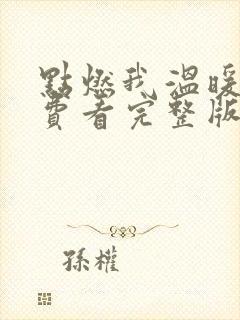 點燃我溫暖
費看完整版
孫權